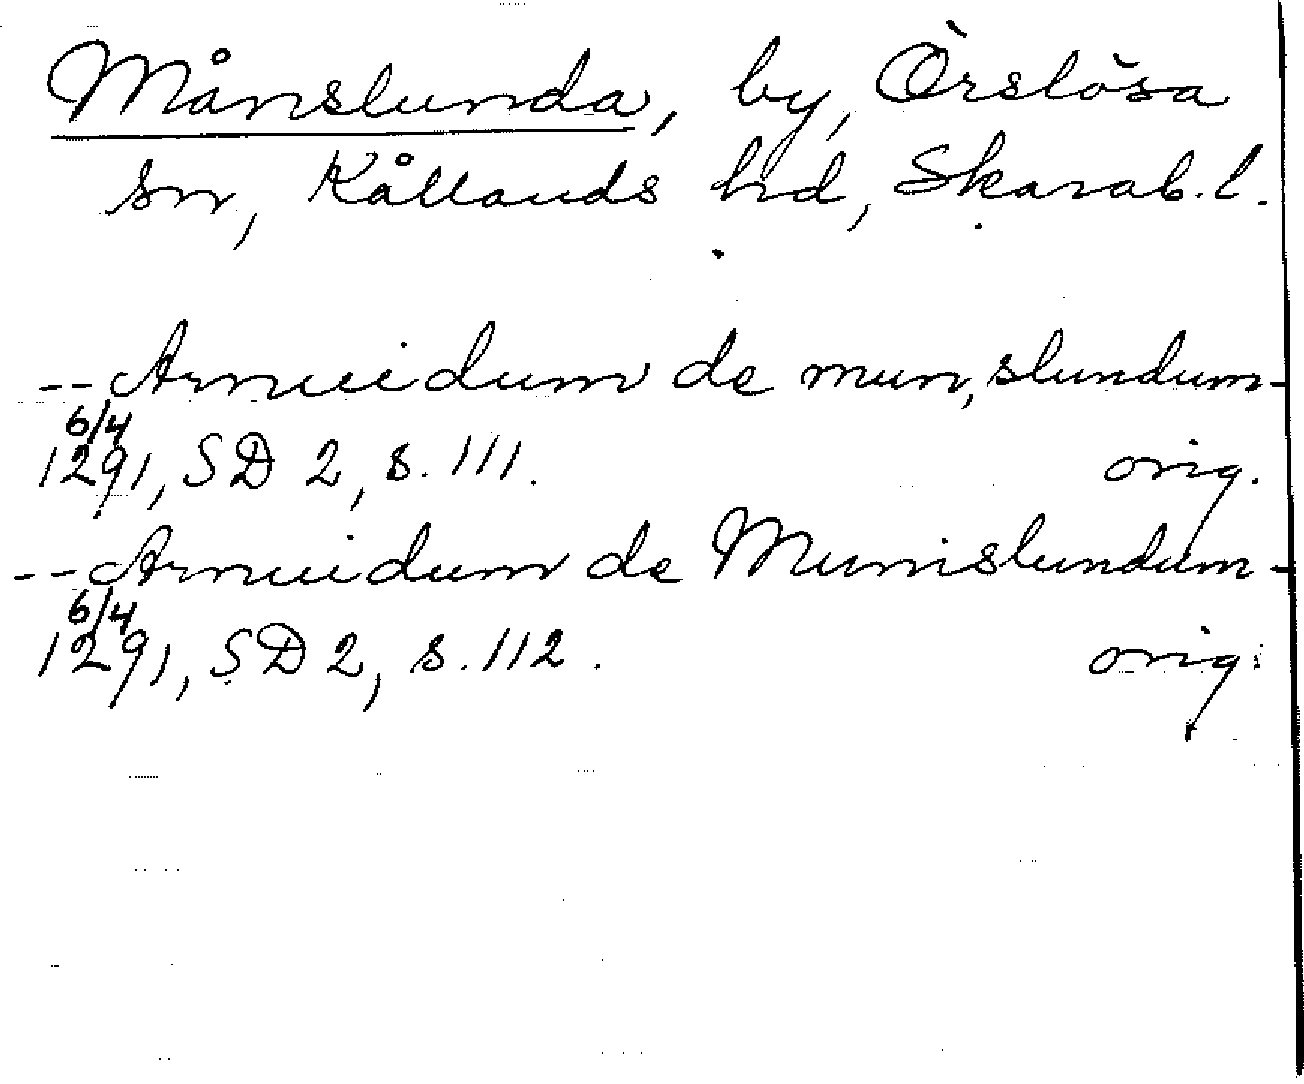 Månslunda, by, Örslösa
sn, Kållands hd, Skarab. l.
--Arnuidum de mun, slundum-
6/4
1291, SD 2, s. 111. orig.
--Arnuidum de Munislundum-
6/4
1291, SD 2, s. 112. orig.